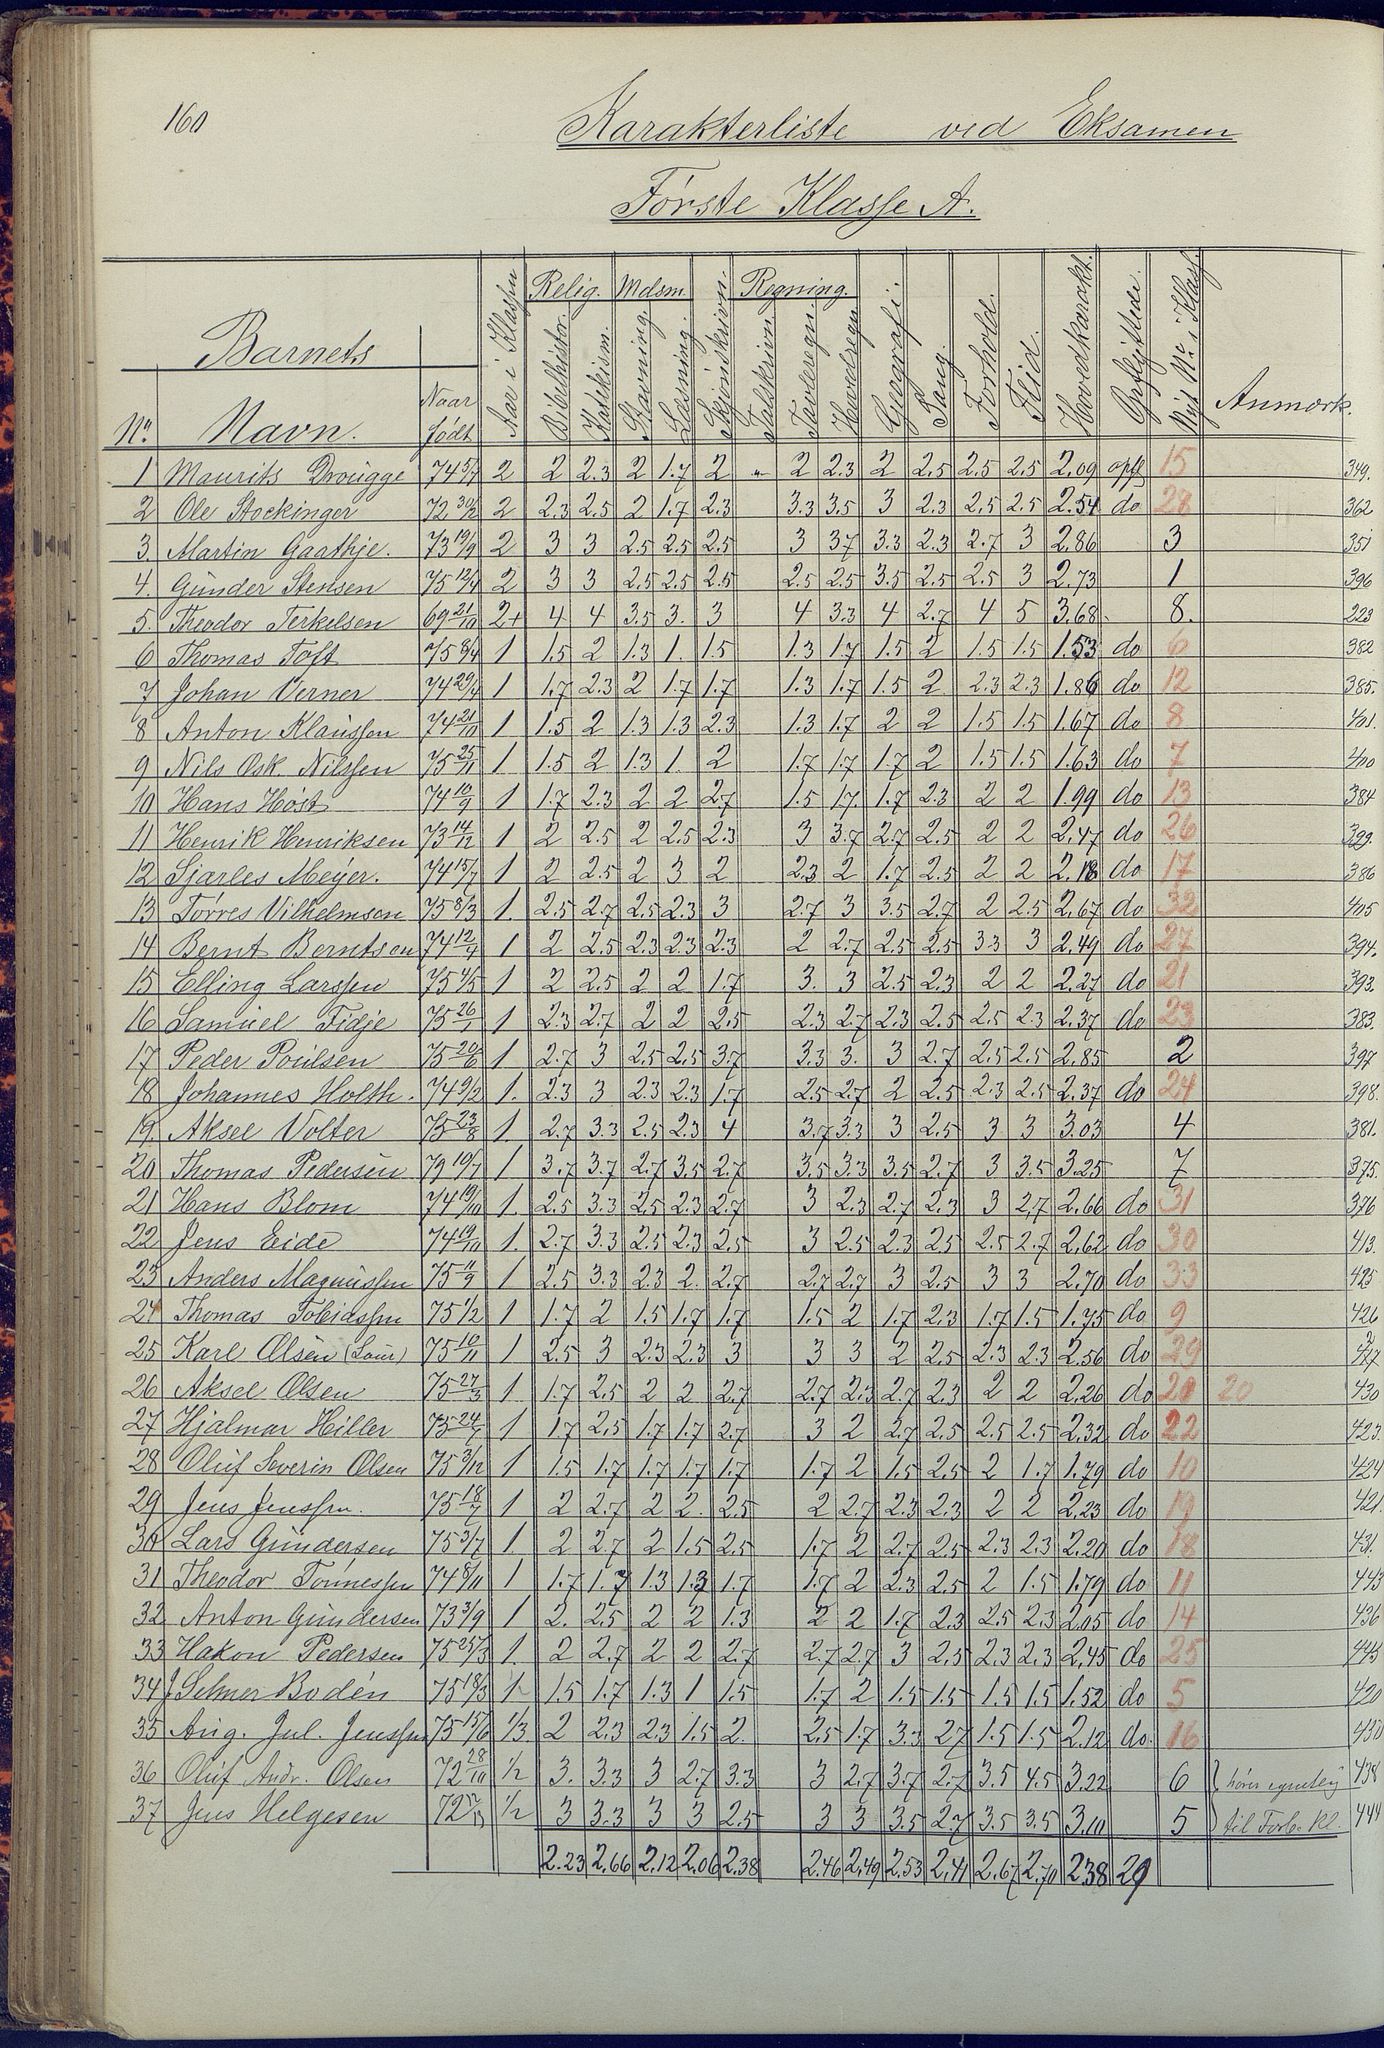 160
Karakterliste ved Eksamen
Første Klasse A.
Barnets
No. Navn. Naar født Aar i Klassen Relig. Bibelhistor. Katekism. Mdsm. Stavning. Læsning. Skjønskrivn. Regning. Talskrivn. Tavleregn. Hovedregn. Geografi. Sang. Forhold. Flid. Hovedkarakt. Opflyttede. Nyt No. i Klass. Anmærk.
1 Maurits Drougge 74 5/7 2 2 2.3 2 1.7 2 " 2 2.3 2 2.5 2.5 2.5 2.09 opfl 15 349.
2 Ole Stockinger 72 30/12 2 2.3 2.5 2 1.7 2.3 3.3 3.5 3 2.3 2.5 2.5 2.54 do 28 362
3. Martin Gaathje. 73 19/9 2 3 3 2.5 2.5 2.5 3 3.7 3.3 2.3 2.7 3 2.86 3 351
4. Gunder Stensen 75 12/4 2 3 3 2.5 2.5 2.5 2.5 2.5 3.5 2.5 2.5 3 2.73 1 396
5. Theodor Terkelsen 69 21/10 2+ 4 4 3.5 3. 3 4 3.3 4 2.7 4 5 3.68 8. 223
6 Thomas Toft 75 8/4 1 1.5 2 1.3 1. 1.5 1.3 1.7 1.5 2 1.5 1.5 1.53 do 6 382
7 Johan Verner 74 29/4 1 1.7 2.3 2 1.7 1.7 1.3 1.7 1.5 2 2.3 2.3 1.86 do 12 385.
8 Anton Klaussen 74 21/10 1 1.5 2 1.3 1.3 2.3 1.3 1.7 2 2 1.5 1.5 1.67 do 8 401.
9 Nils Osk. Nilssen 75 25/11 1 1.5 2 1.3 1. 2 1.7 1.7 1.7 2 1.5 1.5 1.63 do 7 400
10 Hans Høst 74 10/9 1 1.7 2.3 2 2 2.7 1.5 1.7 1.7 2.3 2 2 1.99 do 13 384
11 Henrik Henriksen 73 14/12 1 2 2.5 2 2.5 2.3 3 3.7 2.7 2.5 2 2 2.47 do 26 399.
12 Sjarles Meyer. 74 15/7 1 2 2.5 2 3 2 2.3 2 1.7 2.5 2 2 2.18 do 17 386
13 Tørres Vilhelmsen 75 8/3 1. 2.5 2.7 2.5 2.3 3 2.7 3 3.5 2.7 2 2.5 2.67 do 32 405
14 Bernt Berntsen 74 12/4 1 2 2.5 2.3 2.3 2.3 2 2.7 2.5 2.5 3.3 3 2.49 do 27 394.
15 Elling Larssen 75 4/5 1 2 2.5 2 2 1.7 3. 3 2.5 2.3 2 2 2.27 do 21 393.
16 Samuel Fidje 75 26/1 1 2.3 2.7 2 2 2.5 2.3 2.7 2.3 2.5 2.5 2.3 2.37 do 23 383.
17 Peder Poulsen 75 20/6 1 2.7 3 2.5 2.5 3.7 3.3 3. 3 2.7 2.5 2.5 2.85 2 397
18 Johannes Holth. 74 9/2 1. 2.3 3 2.3 2.3 1.7 2.5 2.7 2 2.5 2.3 2.5 2.37 do 24 398.
19. Aksel Volter 75 23/8 1 2.7 3.3 2.5 2.3 4 3.7 3.3 3 2.5 3 3 3.03 4 381.
20 Thomas Pedersen 79 10/7 1 3.7 3.7 2.7 3.5 2.7 3.5 3.3 3.5 2.7 3 3.5 3.25 7 375.
21 Hans Blom 74 19/10 1. 2.5 3.3 2.5 2.3 2.7 3 2.3 2.7 2.3 3 2.7 2.66 do 31 376
22 Jens Eide 74 19/10 1. 2.7 3.3 2.5 2.3 2.5 3 2.5 2.3 2.5 2.5 2.7 2.62 do 30 413.
23 Anders Magnussen 75 11/9 1 2.5 3.3 2.3 2. 2.7 2.7 2.7 3 2.5 3 3 2.70 do 33 425
24 Thomas Tobiassen 75 1/2 1 1.7 2 1.5 1.7 1.7 1.5 2 1.7 2.3 1.7 1.5 1.75 do 9 426
25 Karl Olsen (Laur) 75 10/11 1 2.5 3 2.3 2.3 3 3 3 2 2.5 2.3 2.3 2.56 do 29
26 Aksel Olsen 75 27/3 1 1.7 2.5 2 2 2.7 2.7 2.3 2.7 2.3 2 2 2.26 do 20 20 430
27 Hjalmar Hiller 75 24/7 1 1.7 2.5 1.7 1.7 2.7 3 2 2.7 2.5 2.5 2.5 2.32 do 22 423.
28 Oluf Severin Olsen 75 3/12 1 1.5 1.7 1.7 1.7 1.7 1.7 2 1.5 2.5 2 1.7 1.79 do 10 424
29 Jens Jenssen. 75 18/7 1 2 2.7 2 2. 2.5 2 2.7 2.3 2.3 2 2 2.23 do 19 421.
30 Lars Gundersen 75 3/7 1. 2 2.7 2 1.5 2.5 1.7 2 2.7 2.5 2.3 2.3 2.20 do 18 431.
31 Theodor Tønnessen 74 8/11 1 1.7 1.7 1.3 1.3 1.7 1.7 2 2.3 2.5 2 1.5 1.79 do 11 443
32 Anton Gundersen 73 3/9 1 2. 2.5 2 2 1.3 2 2 1.7 2.3 2.5 2.3 2.05 do 14 436
33 Hakon Pedersen 75 25/3 1. 2 2.7 2 2 2.7 2.7 2.7 3 2.5 2.3 2.3 2.45 do 25 445
34 J. Selmer Bodén 75 18/3 1 1.5 1.7 1.3 1 1.5 1.7 2 1.5 1.5 1.5 1.5 1.52 do 5 420
35 Aug. Jul. Jenssen 75 15/6 1/3. 2 2.3 2.3 1.5 2. 2.5 1.7 3.3 2.7 1.5 1.5 2.12 do. 16 450
36 Oluf Andr. Olsen 72 28/10 1/2 3. 3.3 3 2.7 3.3 3 2.7 3.7 2.7 3.5 4.5 3.22 6 hører egentlig 438
37 Jens Helgesen 72 1/2 3 3.3 3 3 2.5 3 3 3.5 2.7 3.5 3.5 3.10 5 til Forb. Kl. 444
2.23 2.66 2.12 2.06 2.38 2.46 2.49 2.53 2.41 2.67 2.70 2.38 29